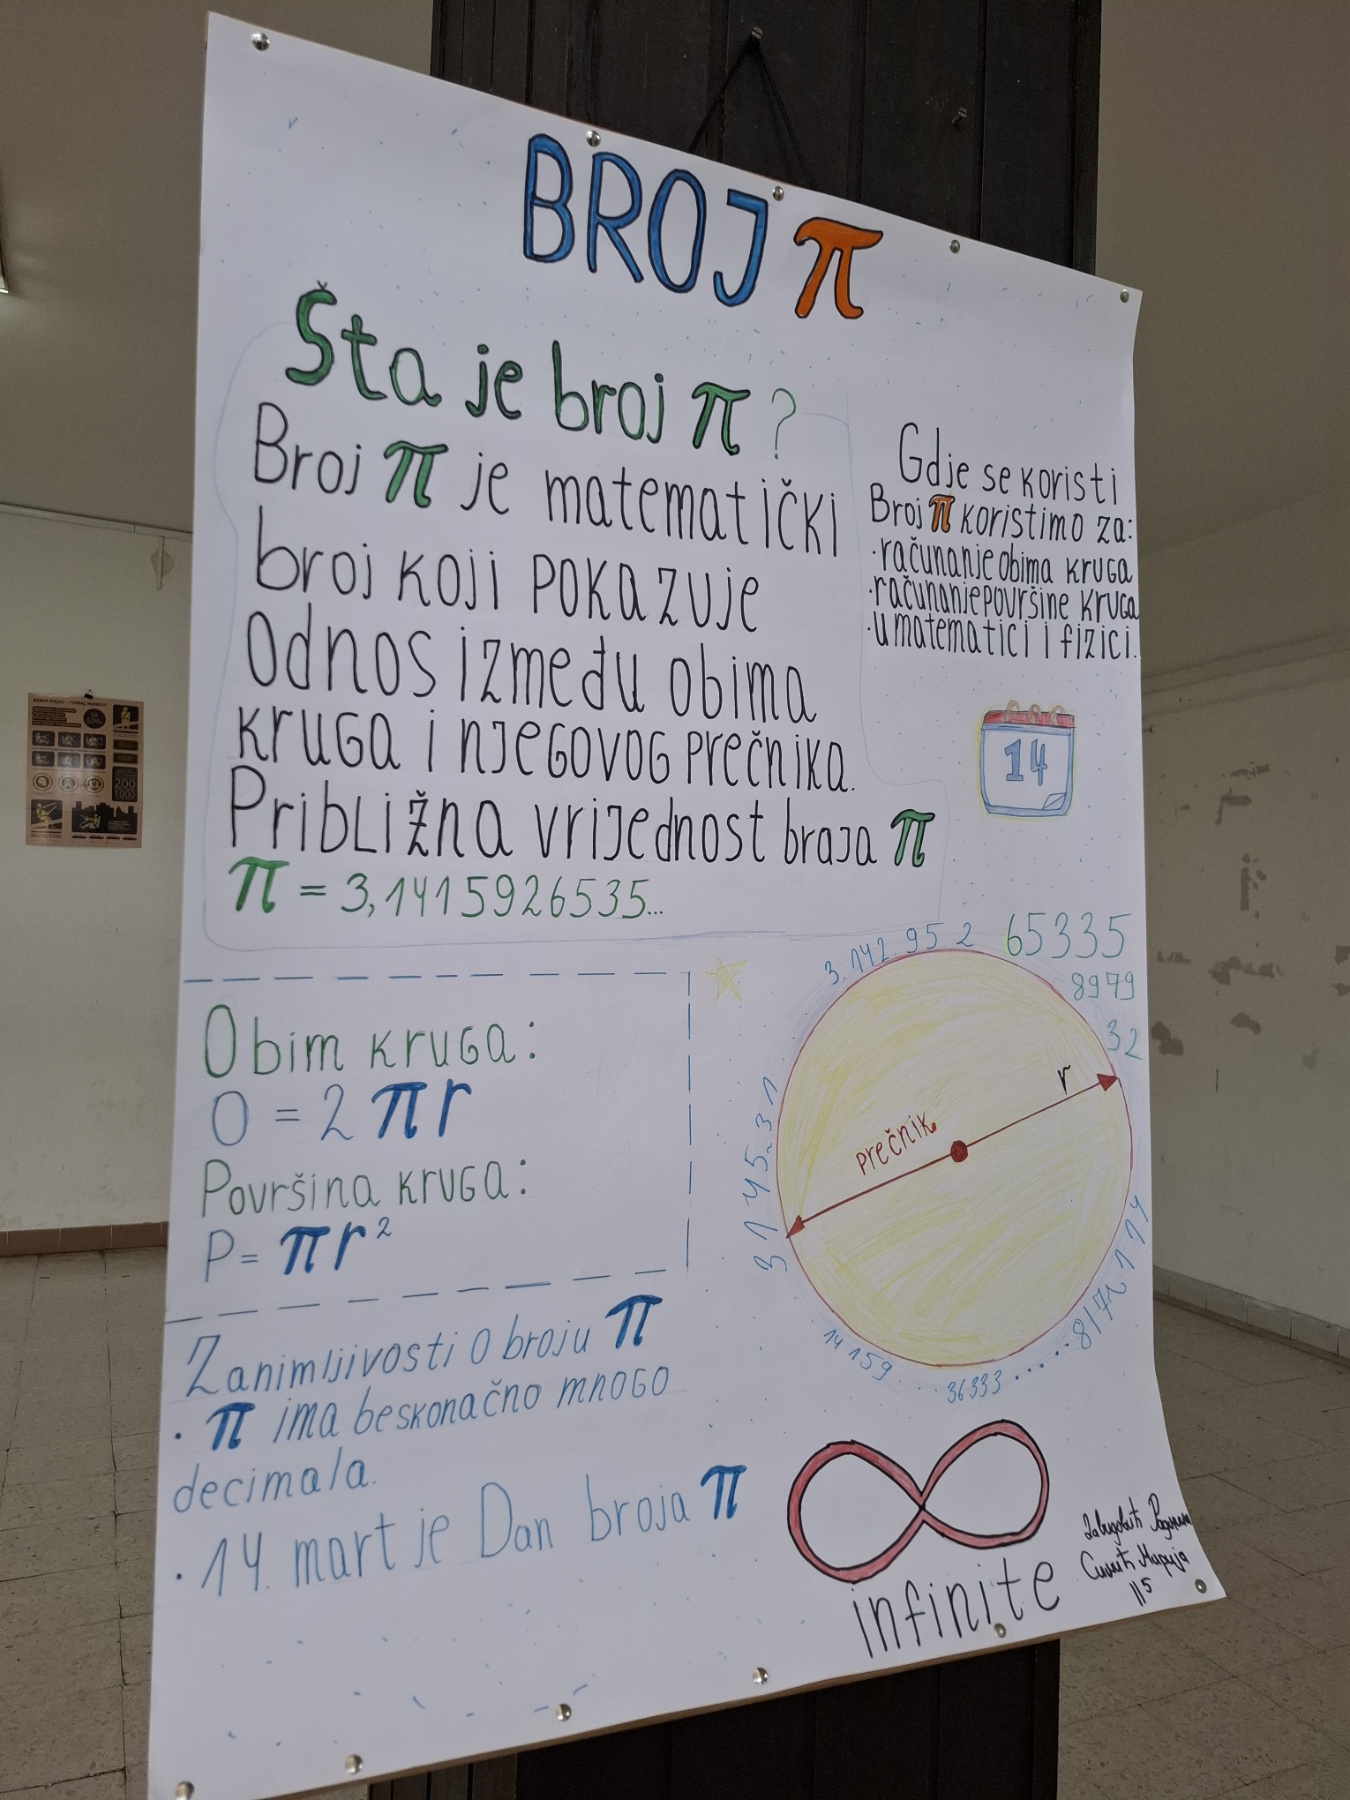 BROJ π
Šta je broj π?
Broj π je matematički
broj koji pokazuje
odnos između obima
kruga i njegovog prečnika.
Približna vrijednost braja π
π = 3,1415926535...
Gdje se koristi
Broj π koristimo za:
·računanje obima kruga
·računanje površine kruga
·u matematici i fizici.
14
Obim kruga:
O = 2πr
Površina kruga:
P = πr²
3.142.95.2
65335
8979
32
r
prečnik
8172114
36333
14159
Zanimljivosti o broju π
· π ima beskonačno mnogo
decimala.
· 14. mart je Dan broja π
infinite
Марија
II5
200